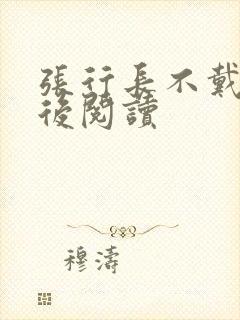 張行長不戴
後閱讀
穆濤